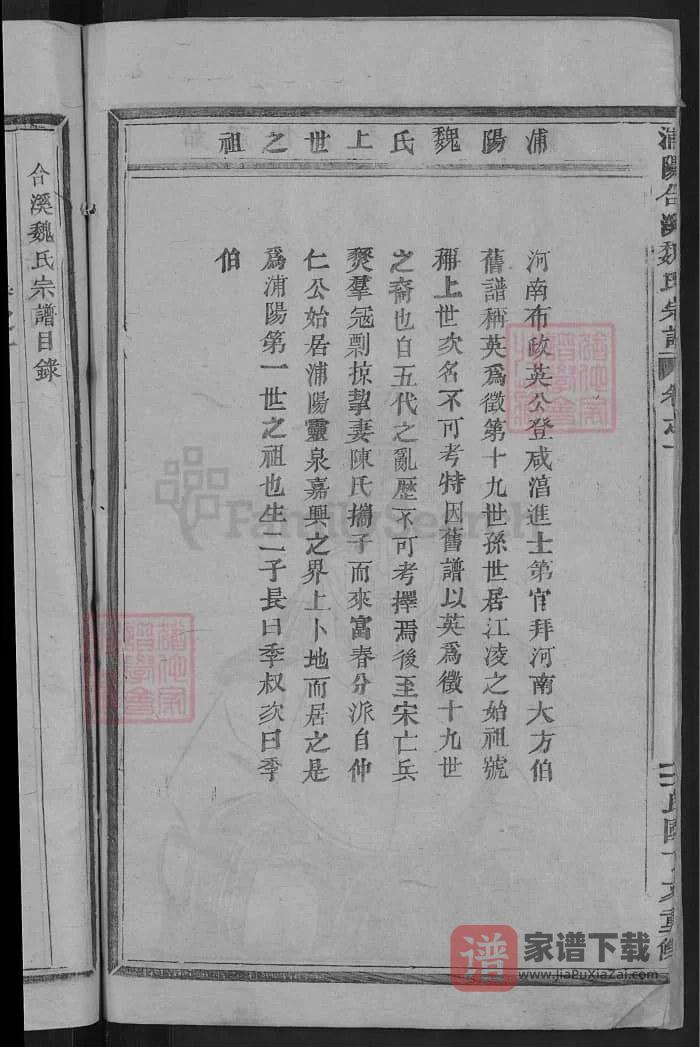 浦陽合溪魏氏宗譜
卷之一
民國
重修
浦陽魏氏上世之祖
河南布政英公登咸淳進士第官拜河南大方伯
舊譜稱英爲徵第十九世孫世居江凌之始祖號
稱上世次名不可考特因舊譜以英爲徵十九世
之裔也自五代之亂歷不可考擇焉後至宋亡兵
燹羣冦剽掠挈妻陳氏攜子而來富春分派自仲
仁公始居浦陽靈泉嘉興之界上卜地而居之是
爲浦陽第一世之祖也生二子長曰季叔次曰季
伯
合溪魏氏宗譜目錄
FamilySearch
譜
家谱下载
www.JiaPuXiaZai.com